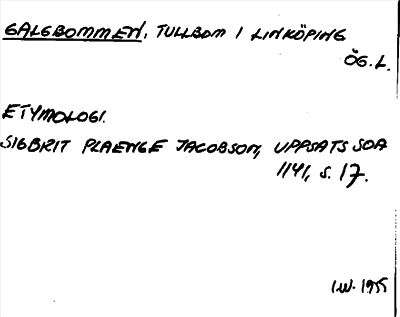 GALGBOMMEN, TULLBOM I LINKÖPING
ÖG. L.
ETYMOLOGI.
SIGBRIT PLAENGE JACOBSON, UPPSATS SOA
1141, S. 17.
I.W. 1955